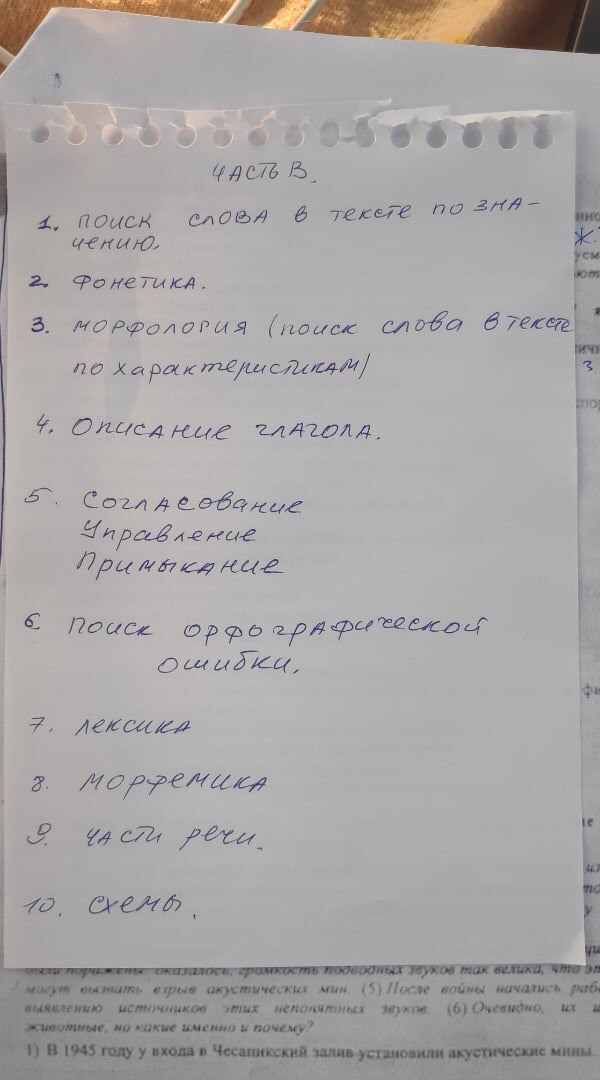 ЧАСТЬ В.
1. ПОИСК СЛОВА В ТЕКСТЕ ПО ЗНА-
ЧЕНИЮ.
2. ФОНЕТИКА.
3. МОРФОЛОГИЯ (ПОИСК СЛОВА В ТЕКСТЕ
ПО ХАРАКТЕРИСТИКАМ)
4. ОПИСАНИЕ ГЛАГОЛА.
5. Согласование
Управление
Примыкание
6. ПОИСК ОРФОГРАФИЧЕСКОЙ
ОШИБКИ.
7. ЛЕКСИКА
8. МОРФЕМИКА
9. ЧАСТИ РЕЧИ.
10. СХЕМЫ.
были поражены: оказалось, громкость подводных звуков так велика, что
могут вызвать взрыв акустических мин. (5) После войны начались
выявлению источников этих непонятных звуков. (6) Очевидно, их
животные, но какие именно и почему?
1) В 1945 году у входа в Чесапикский залив установили акустические мины.